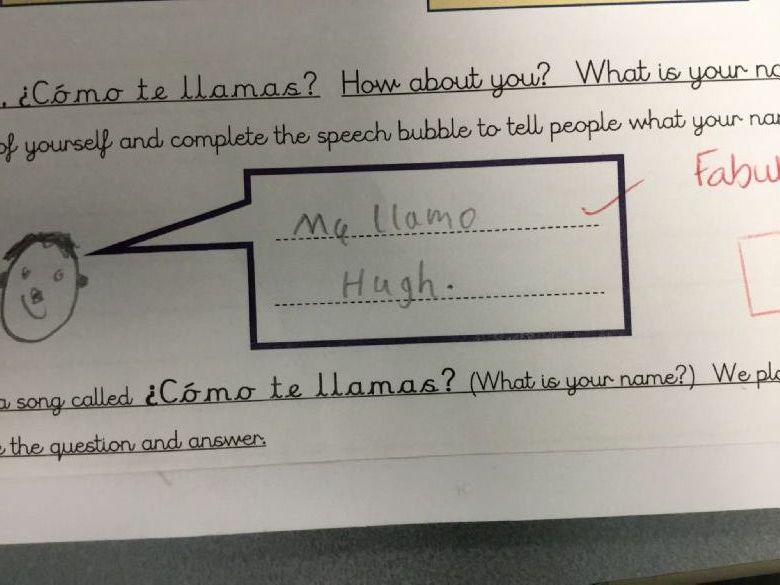 . ¿Cómo te llamas? How about you? What is your
of yourself and complete the speech bubble to tell people what your
Me llamo
Hugh.
a song called ¿Cómo te llamas? (What is your name?) We
the question and answer.